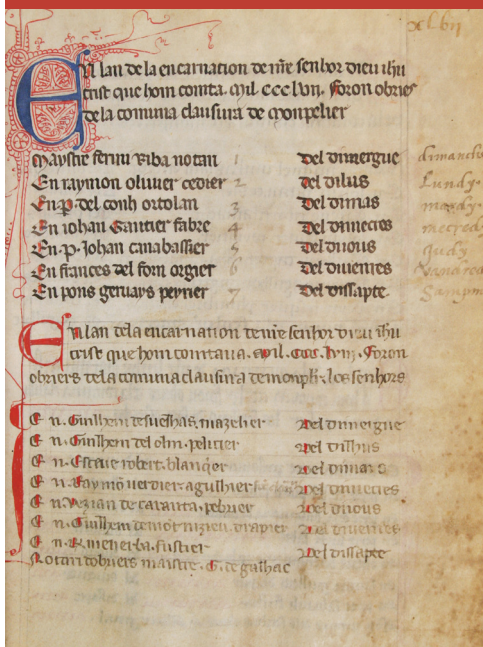 xLvii
En lan de la encarnation de nre senhor dieu ihu
crist que hom comta. Mil ccc lvii. Foron obries
de la comuna clausura de Monpelier
Maystre ferrin Riba notari 1 Del dimergue dimanche
En raymon oliuier cedier 2 Del dilus Lundy
En .p. del conh ortolan 3 Del dimas mardy
En iohan Gautier fabre 4 Del dimecres mecredy
En .p. Johan canabassier 5 Del diious Judy
En frances del forn orgier 6 Del diuenres
En pons geruays peyrier 7 Del dissapte.
En lan de la encarnation de nre senhor dieu ihu
crist que hom comtaua. Mil. ccc. lviii. Foron
obriers de la comuna clausura de monplr. los senhors
En. Guilhem de suelhas. mazelier Del dimergue
En. Guilhem del olm. pelicier Del dilhus
En. Esteue robert. blanqer Del dimars
En. Raymon uerdier agulhier Del dimecres
En. Verian de caranta. pebrier Del diious
En. Guilhem de mornizieu. drapier Del diuenres
En. R. uierba. fustier Del dissapte
Notari dobriers maistre. G. de galhac